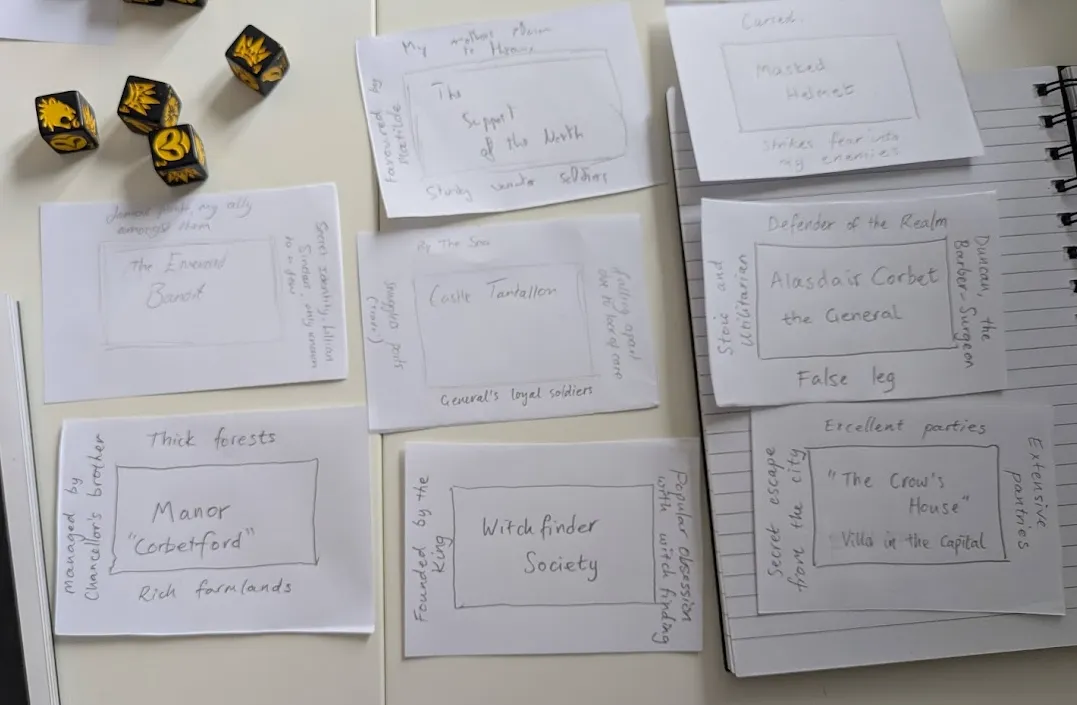 My mothers claim
to
favoured by
Matilde
The
Support
of the North
soldiers
Cursed
Masked
Helmet
strikes fear into
my enemies
my ally
amongst them
The
Bandit
Secret identity,
Sinclair, only known
to a few
By The Sea
Castle Tantallon
falling apart
due to lack of care
General's loyal soldiers
Defender of the Realm
Stoic and
Utilitarian
Alasdair Corbet
the General
Duncan, the
Barber-Surgeon
False leg
Thick forests
Managed by
Chancellor's brother
Manor
"Corbetford"
Rich farmlands
Founded by the
King
Witchfinder
Society
Popular obsession
with witch finding
Excellent parties
Secret escape
from the city
"The Crow's
House"
Villa in the Capital
Extensive
pantries